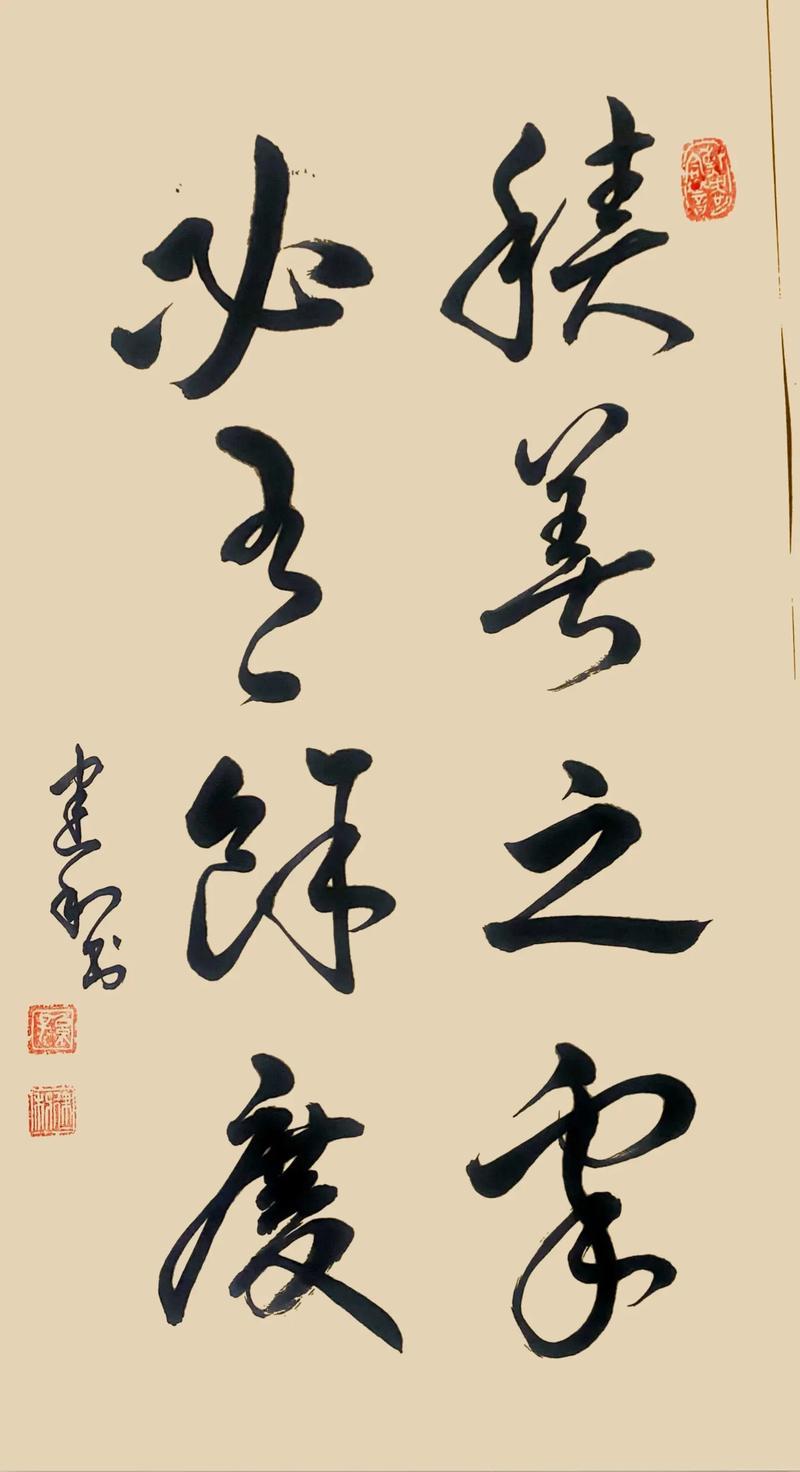 積善之家
必有餘慶
建和书